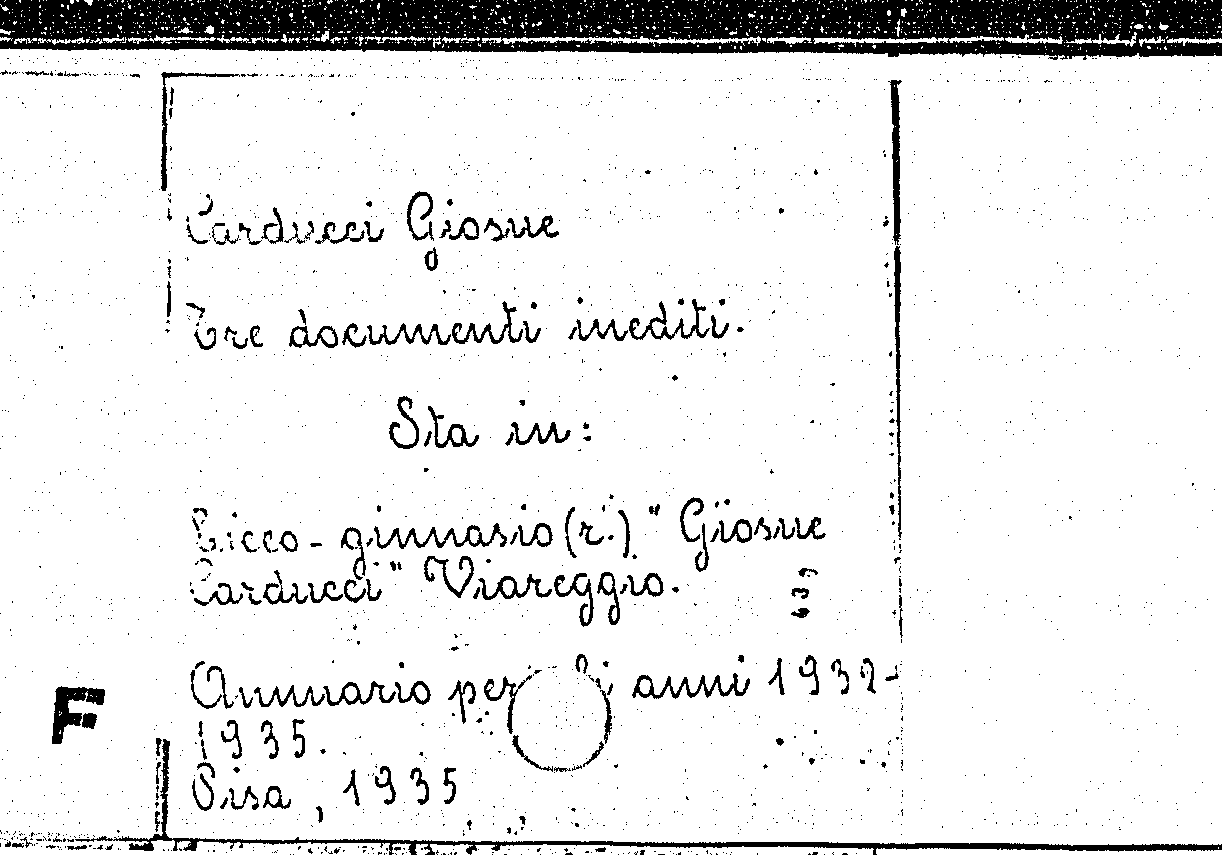 Carducci Giosue
Tre documenti inediti.
Sta in:
Liceo-ginnasio (r.) "Giosue
Carducci" Viareggio.
639
Annuario per gli anni 1932-
1935.
Pisa, 1935
F